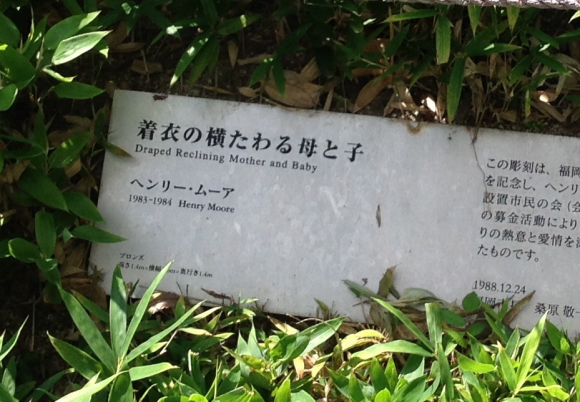 着衣の横たわる母と子
Draped Reclining Mother and Baby
ヘンリー・ムーア
1983-1984 Henry Moore
ブロンズ
高さ1.4m×横幅 ×奥行き1.4m
この彫刻は、福岡
を記念し、ヘンリ
設置市民の会(会
の募金活動により
りの熱意と愛情を
たものです。
1988.12.24
桑原 敬一